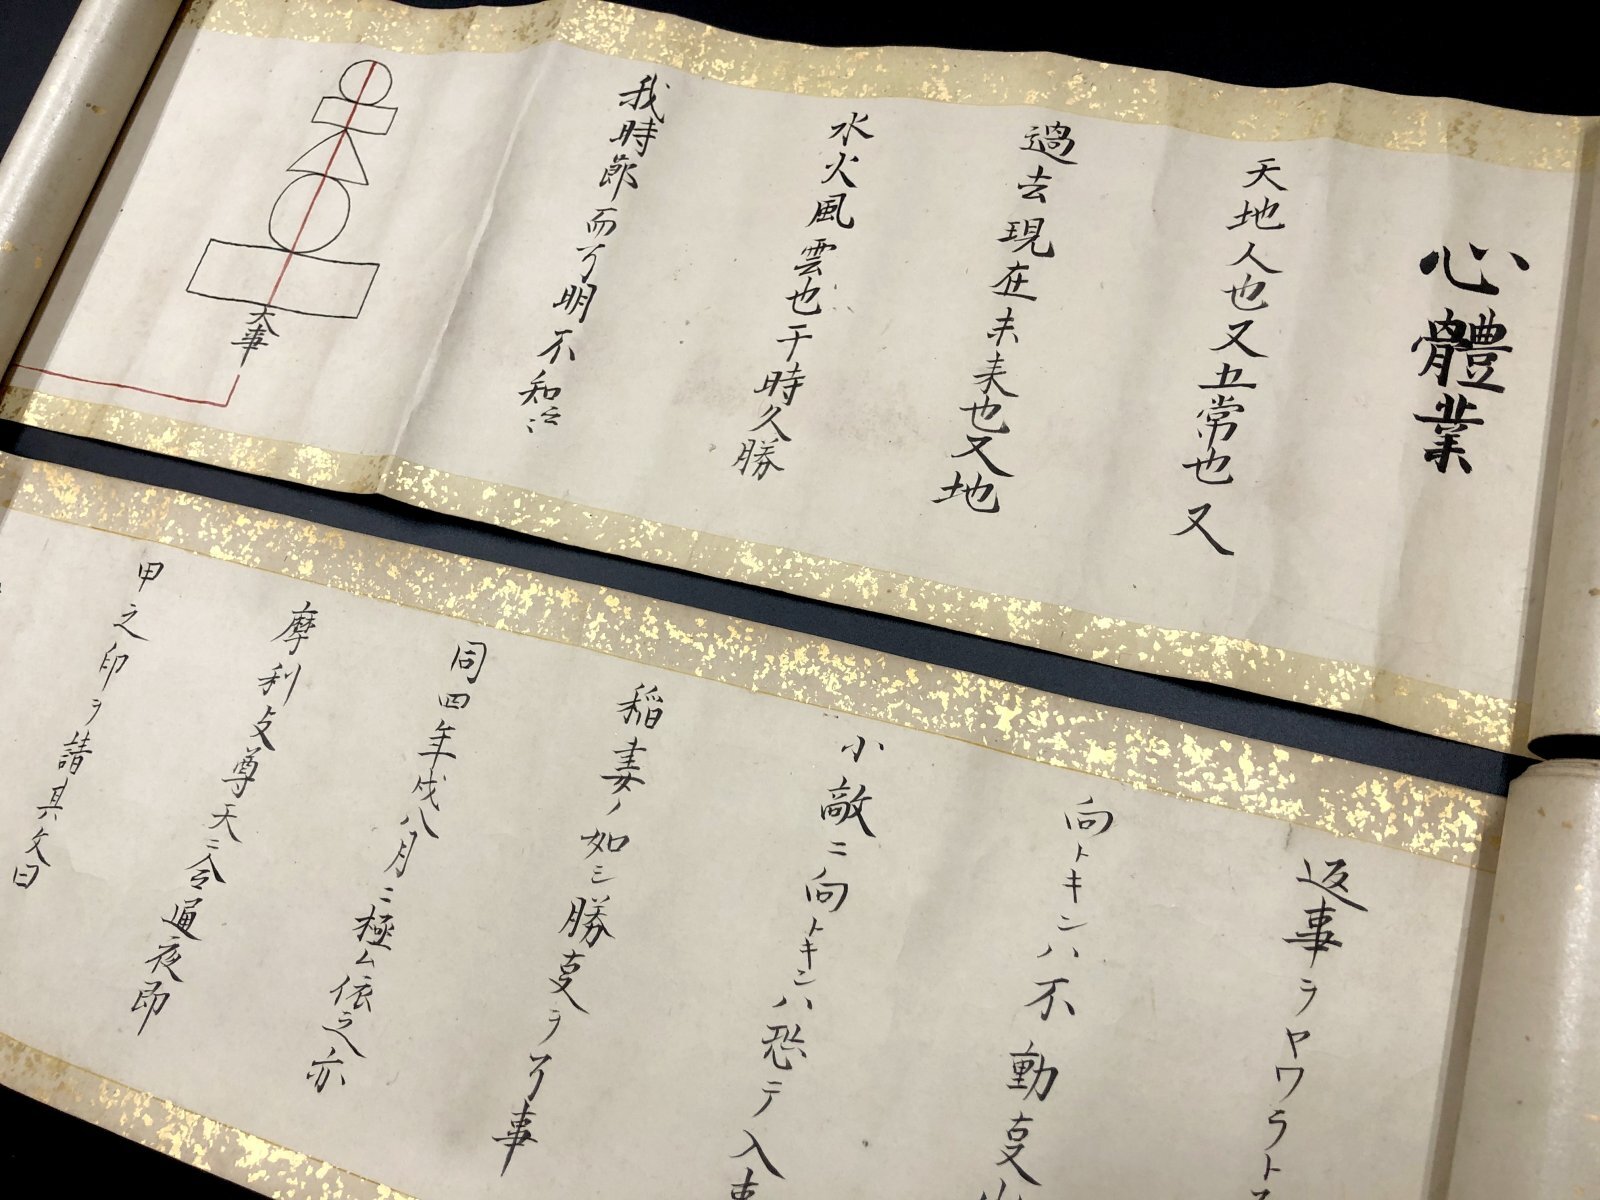 心體業
天地人也又五常也又
過去現在未来也又地
水火風雲也于時久勝
我時節而了明不知
大事
返事ヲヤワラト
向トキンハ不動
小敵ニ向トキンハ恐テ入事
稲妻ノ如シ勝叓ヲ了事
同四年戌八月ニ極ム依之亦
摩利支尊天ニ令通夜即
甲之印ヲ請其文曰